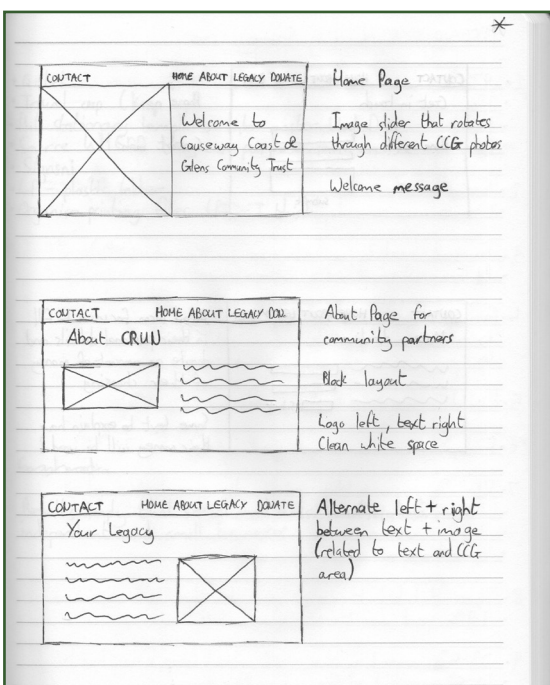 CONTACT HOME ABOUT LEGACY DONATE
Welcome to
Causeway Coast &
Glens Community Trust
Home Page
Image slider that rotates
through different CCG photos
Welcome message
CONTACT HOME ABOUT LEGACY DON.
About CRUN
About Page for
community partners
Block layout
Logo left, text right
Clean white space
CONTACT HOME ABOUT LEGACY DONATE
Your Legacy
Alternate left + right
between text + image
(related to text and CCG
area)